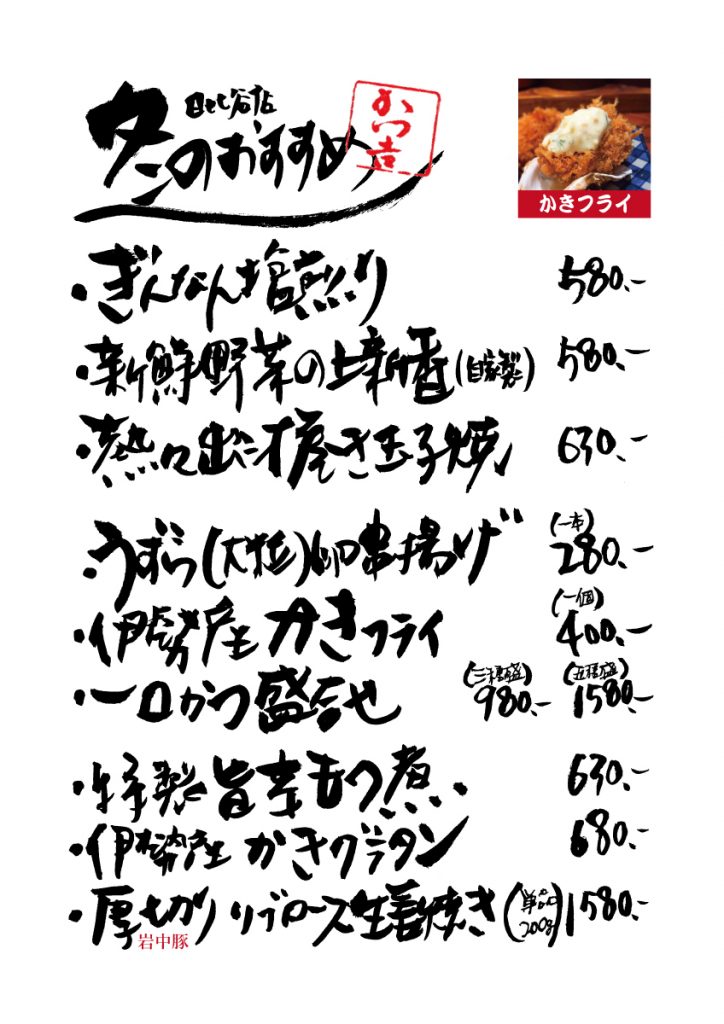 日比谷店
冬のおすすめ
かつ吉
かきフライ
・ぎんなん塩煎り 580.-
・新鮮野菜のお新香(自家製) 580.-
・熱々出汁巻き玉子焼 630.-
・うずら(大粒)卵串揚げ (一本) 280.-
・伊勢産かきフライ (一個) 400.-
・一口かつ盛合せ (三種盛) 980.- (五種盛) 1580.-
・特製旨辛もつ煮 630.-
・伊勢産かきグラタン 680.-
・厚切りリブロース生姜焼き (単品200g) 1580.-
岩中豚